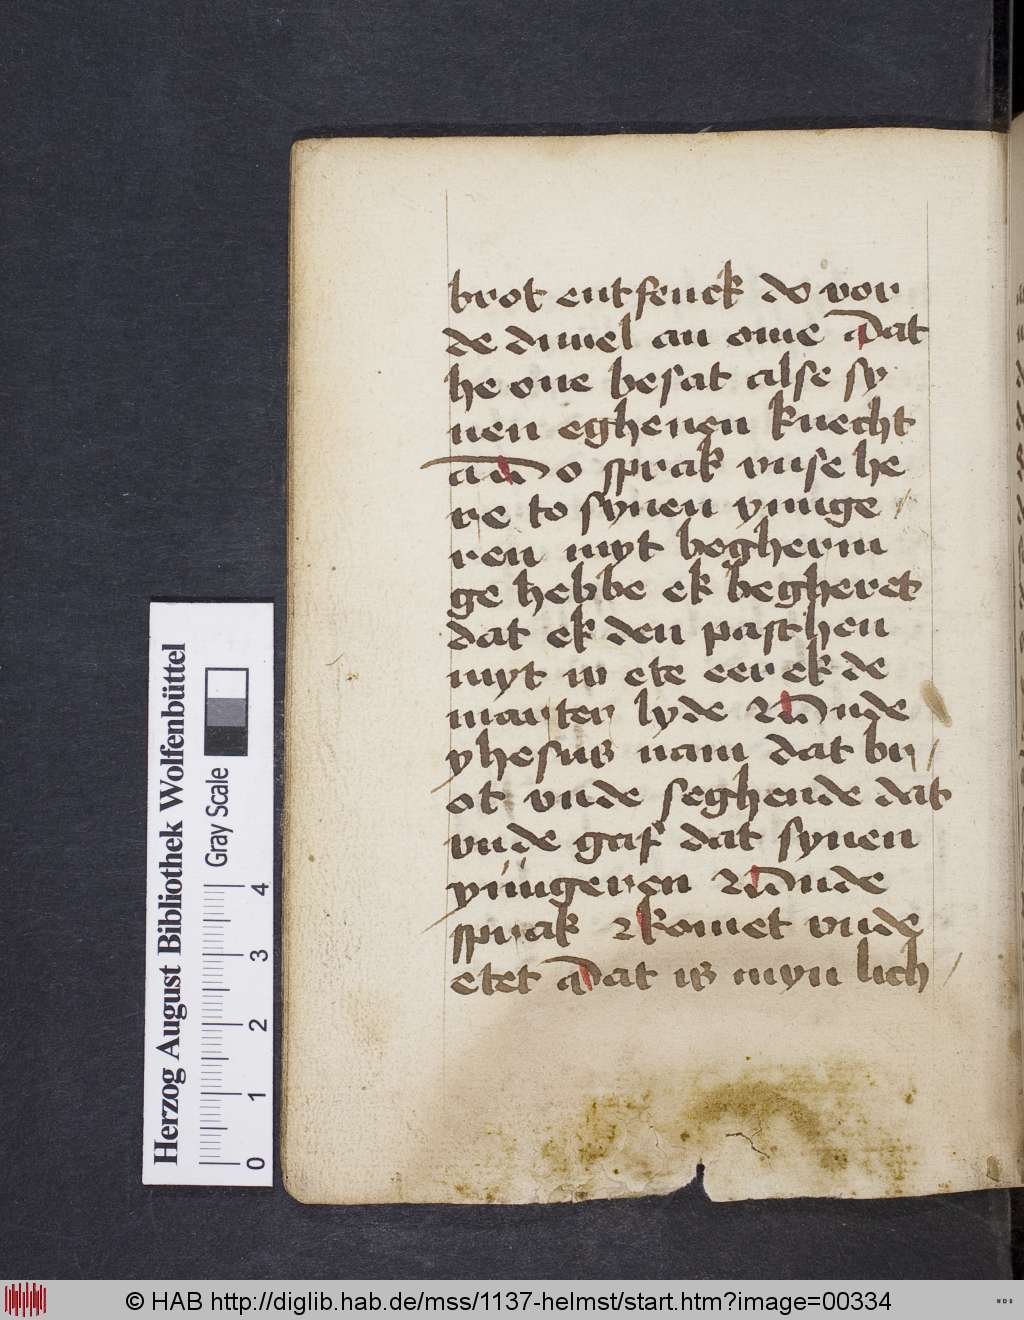 brot entfenck do vor
de duuel an ome dat
he one besat alse sy
nen eghenen knecht
Do sprak vnse he
re to synen yunge
ren myt begherin
ge hebbe ek begheret
dat ek den paschen
myt iv ete eer ek de
marter lyde Vnde
yhesus nam dat br
ot vnde seghende dat
vnde gaf dat synen
yungeren Vnde
sprak komet vnde
etet dat is myn lich
Herzog August Bibliothek Wolfenbüttel
Gray Scale
0 1 2 3 4
© HAB http://diglib.hab.de/mss/1137-helmst/start.htm?image=00334